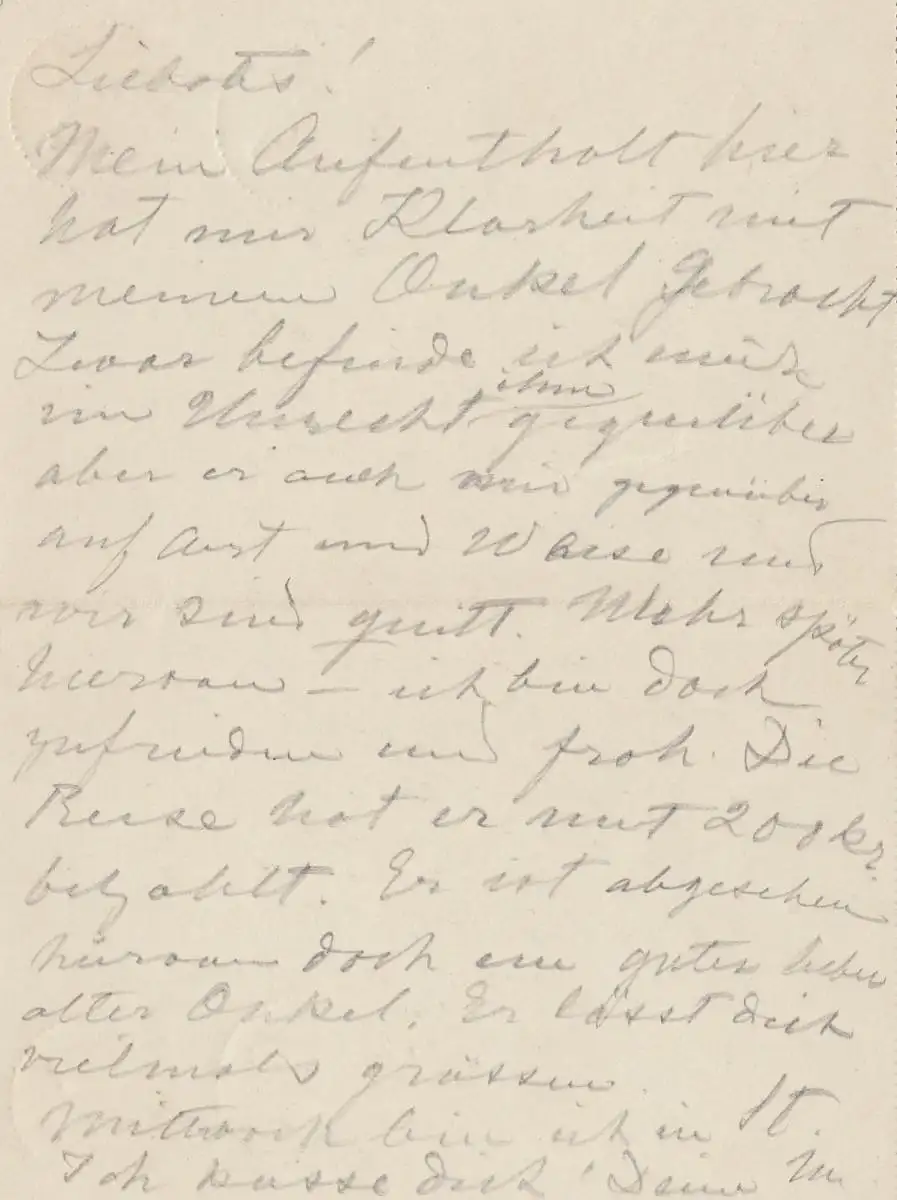 Liebstes!
Mein Aufenthalt hier
hat mir Klarheit mit
meinem Onkel gebracht
Zwar befinde ich mich
im Unrecht ihm gegenüber
aber er auch mir gegenüber
auf Art und Weise und
wir sind quitt. Mehr später
hiervon – ich bin doch
zufrieden und froh. Die
Reise hat er mit 200 kr.
bezahlt. Er ist abgesehen
hiervon doch ein guter lieber
alter Onkel. Er lässt dich
vielmals grüssen.
Mittwoch bin ich in St.
Ich küsse dich! Deine M.